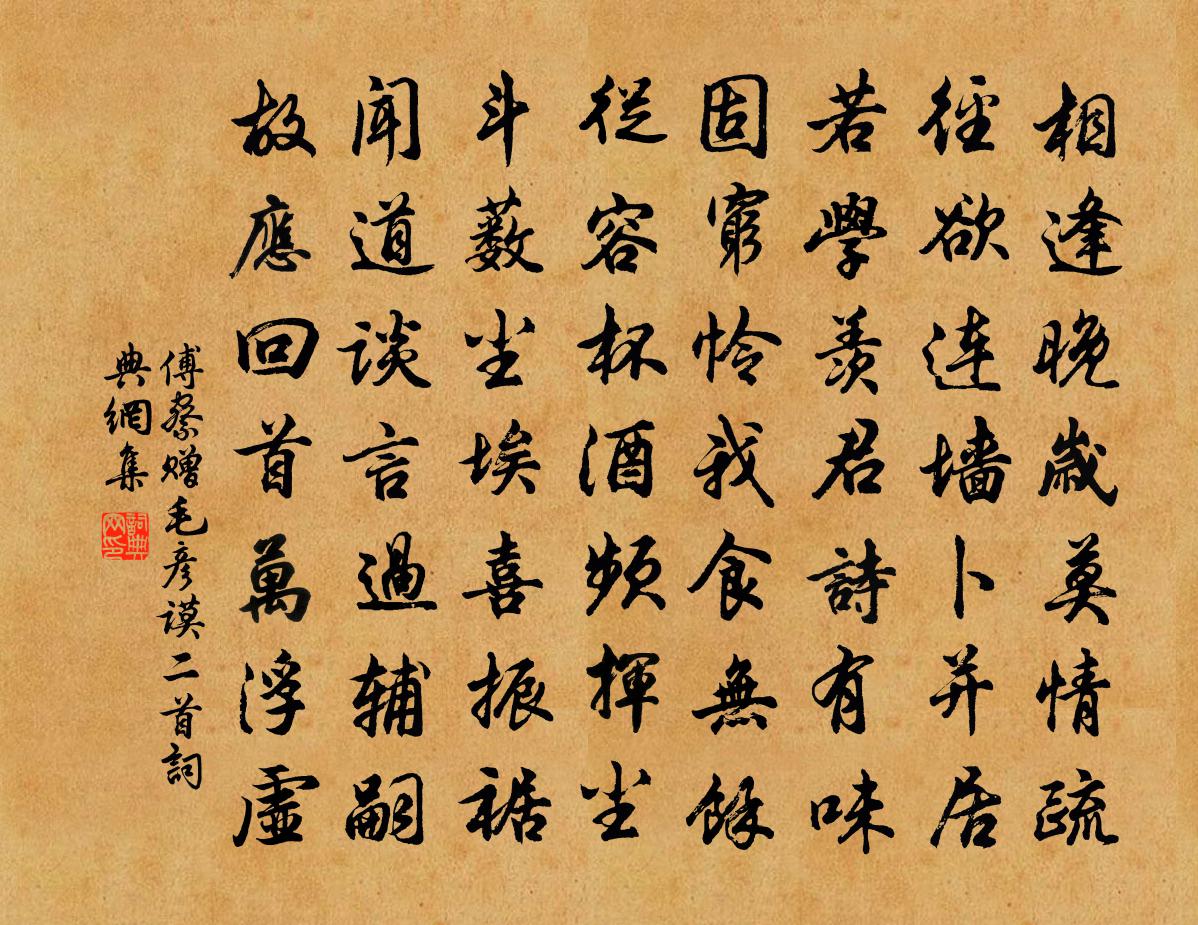 相逢晚歲莫情疏
徑欲連墻卜并居
若學羨君詩有味
固窮憐我食無餘
從容杯酒頻揮塵
斗藪塵埃喜振裾
聞道談言過輔嗣
故應回首萬浮虛
傅察贈毛彥謨二首詞
典網集
詞典網印